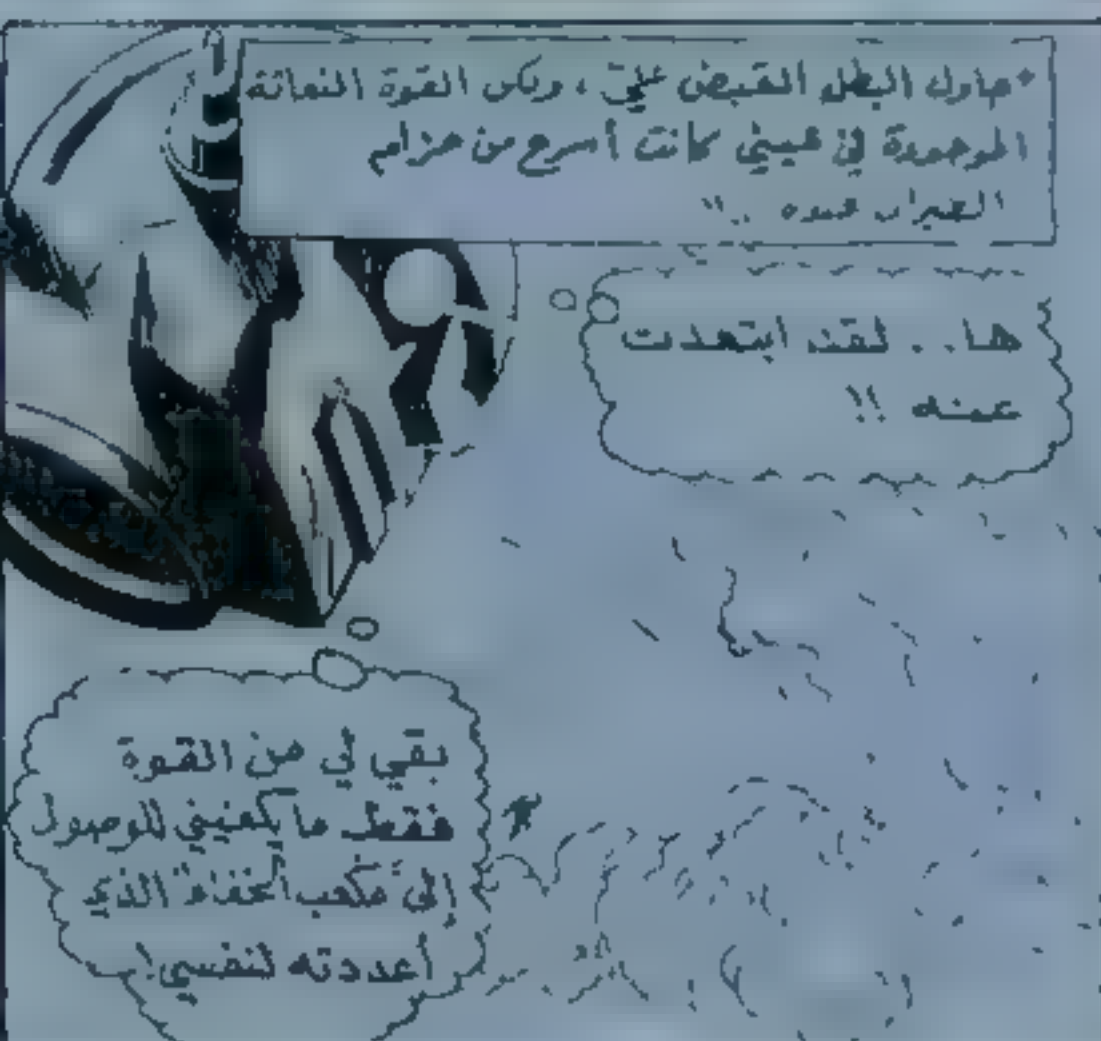 "حاول البطل القبض عليّ ، ولكن القوة النفاثة
الموجودة في عيني كانت أسرع من حزام
الطيران عنده .."
ها.. لقد ابتعدت
عنه !!
بقي لي من القوة
فقط ما يكفيني للوصول
إلى "مكعب الخفاء" الذي
أعددته لنفسي!